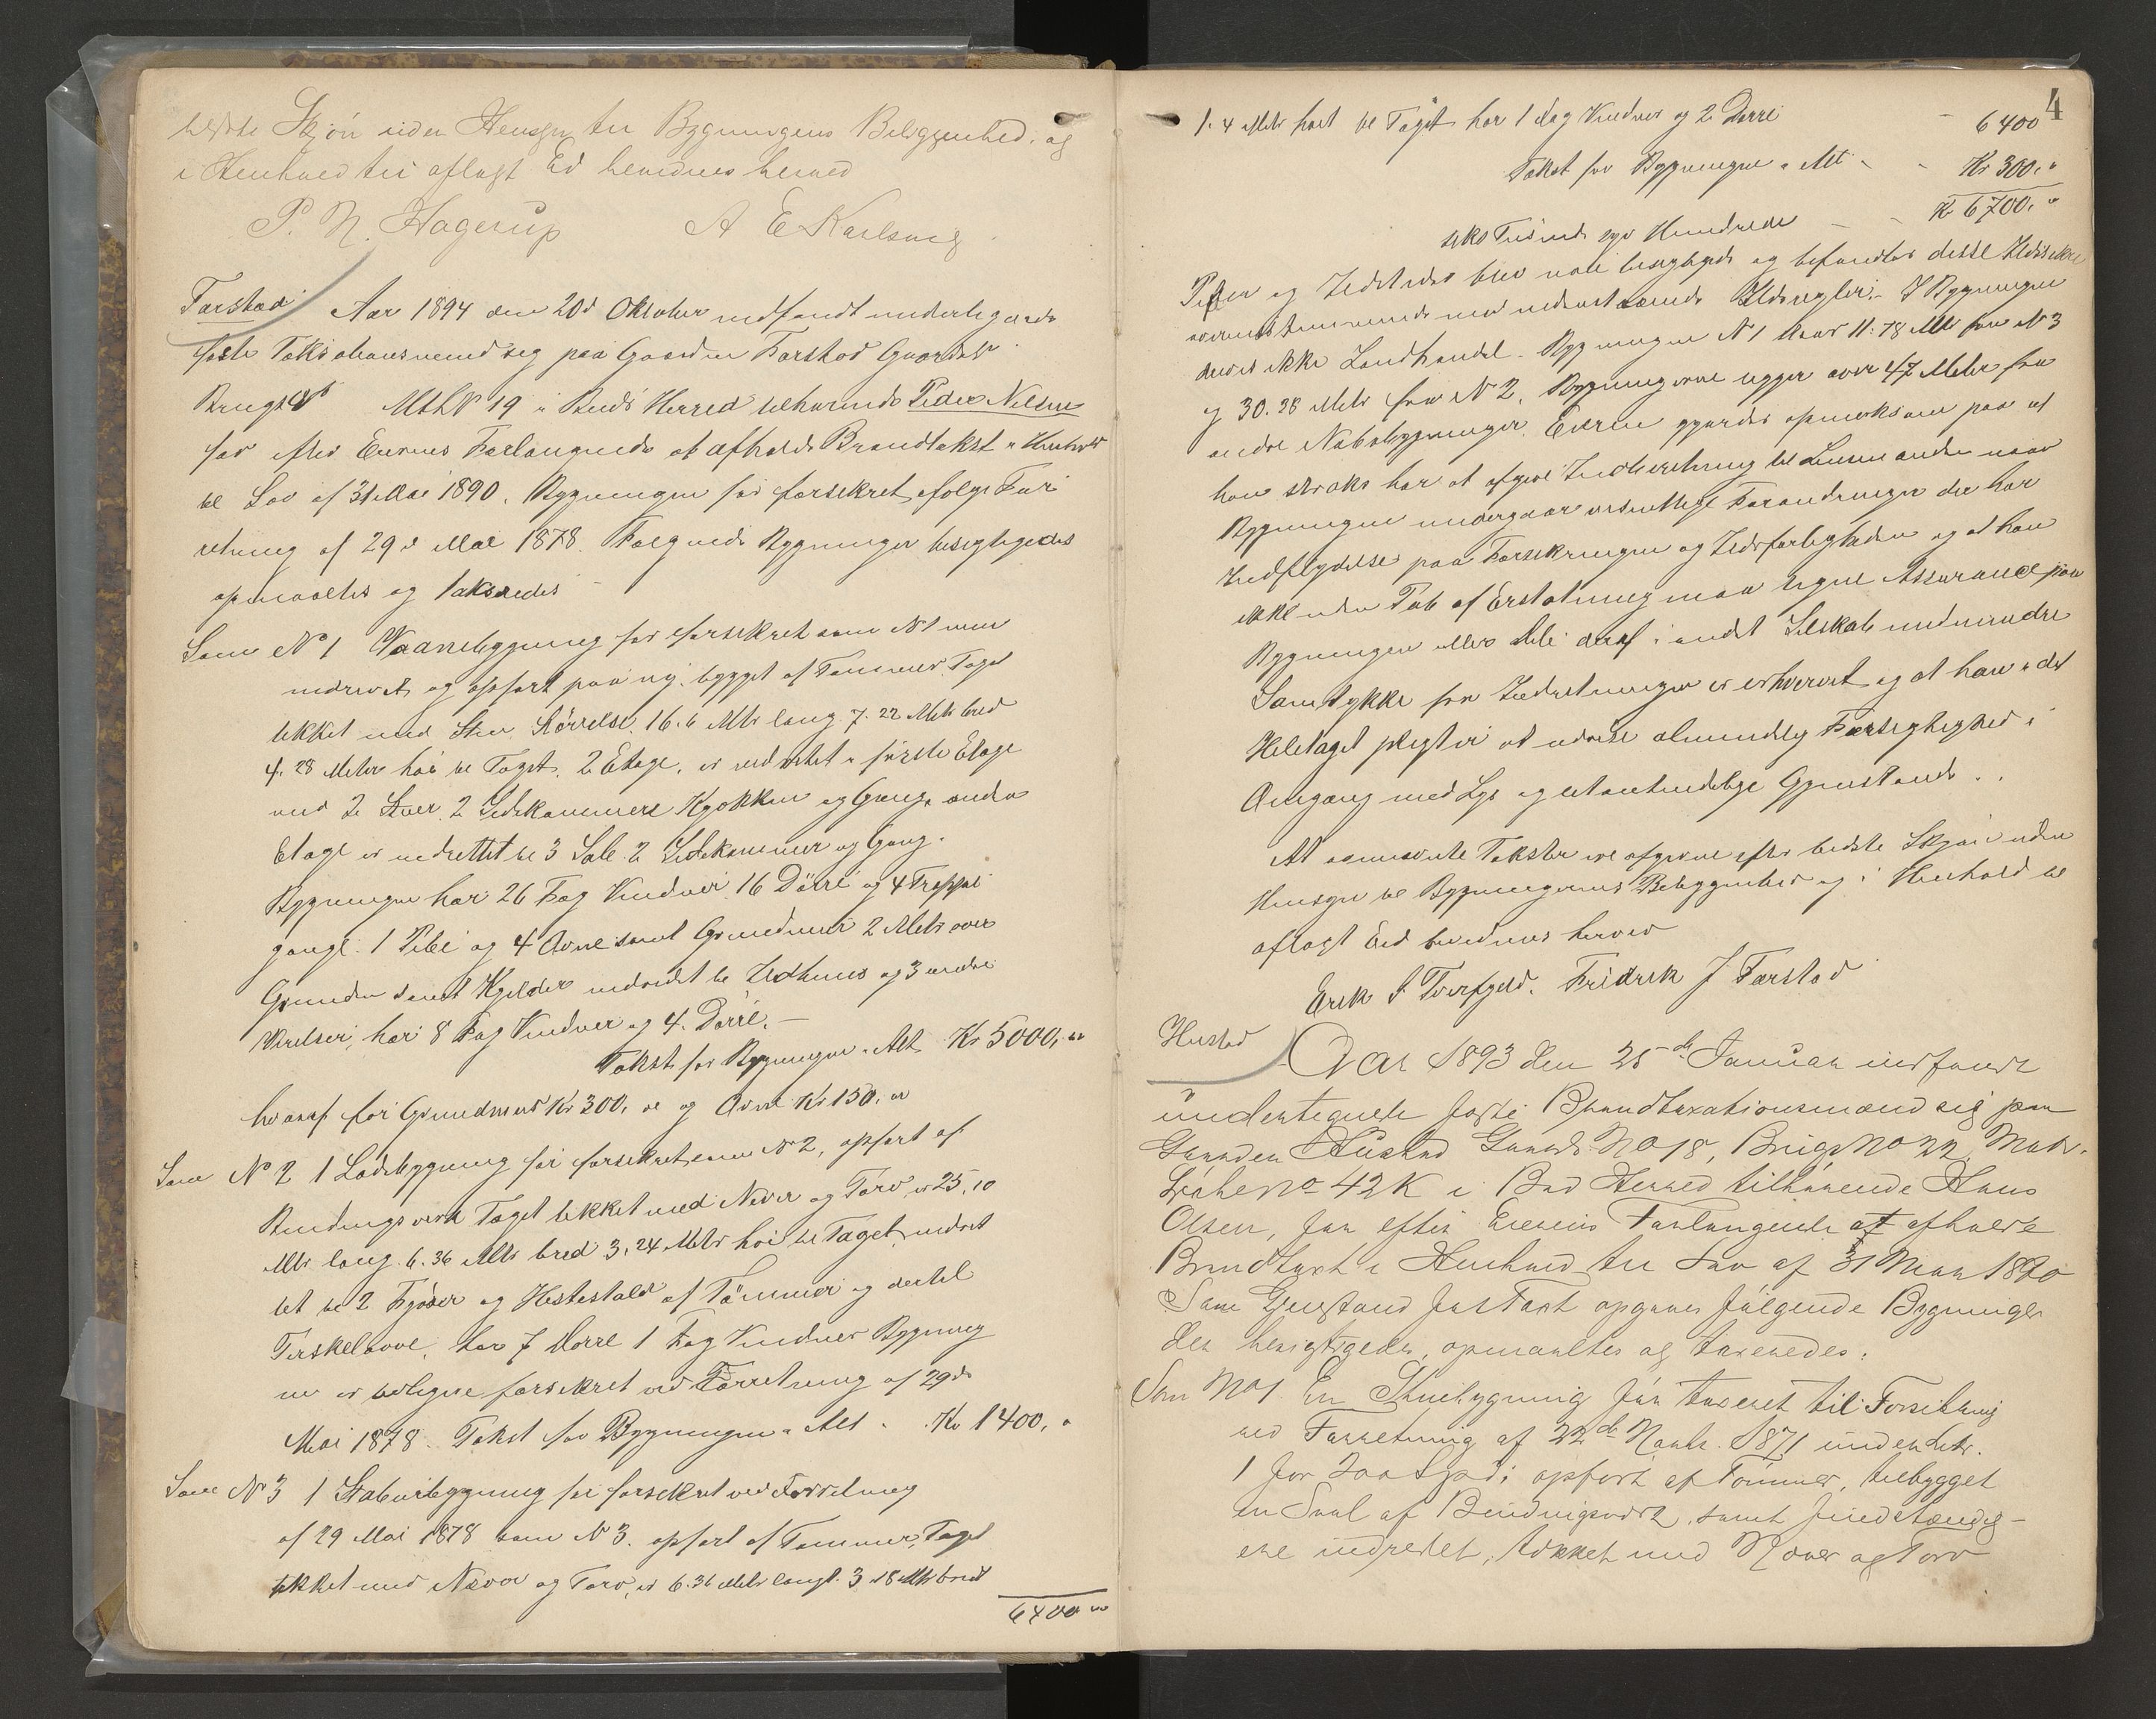 bedste Skjön uden Hensyn til Bygningens Beliggenhed. og
i Henhold til aflagt Ed bevidnes herved
P. N. Hagerup A E Karlsvig
Farstad Aar 1894 den 20d Oktober indfandt undertegnede
faste Takstmænd sig paa Gaarden Farstad Gaardsn
Brugs N Mtl N 19 i Buds Herred tilhørende Peder Nilsen
for efter Eierens Forlangende at afholde Brandtakst i Henhold
til Lov af 31 Mai 1890. Bygningen før forsekret ifølge For
retning af 29d Mai 1878. Følgende Bygninger besigtigedes
opmaaltes og takseredes
Som N 1 Vaanebygning før forsekret som N 1 men
nedrevet og opført paa ny. bygget af Tømmer Taget
tekket med Sten Størrelse. 16.6 Mtr lang 7.22 Mtr bred
4.28 Meter høi til Taget. 2 Etage. er indrettet i første Etage
med 2 Stuer 2 Sidekammere Kjøkken og Gang, anden
Etage er indrettet til 3 Sale 2 Sidekammer og Gang.
Bygningen har 26 Fag Vinduer 16 Dörre og 4 Trappe
gange. 1 Pibe og 4 Ovne samt Grundmur 2 Mtr over
Grunden samt Kjelder indredet til Ildhuus og 3 andre
Værelser, har 8 Fag Vinduer og 4 Dörre. —
Takst for Bygningen i Alt Kr 5000,"
hvoraf for Grundmur Kr 300, og Ovne Kr 150,
Som N 2 1 Ladebygning før forsekret som N 2, opført af
Bindingsverk Taget tekket med Never og Torv, er 25,10
Mtr lang 6.36 Mtr bred 3,24 Mtr høi til Taget, indret
tet til 2 Fjøser og Hestestald af Tömmer og dertil
Tærskelaave, har 7 Dörre 1 Fag Vinduer Bygning
en er tidligere forsikret ved Forretning af 29de
Mai 1878. Takst for Bygningen i Alt Kr 1400,
Som N 3 1 Stabursbygning før forsekret ved Forretning
af 29 Mai 1878 som N 3. opført af Tømmer, Taget
tekket med Never og Torv, er 6.36 Mtr langt 3.18 Mtr bredt
6400
4
1.4 Mtr høit til Taget har 1 Fag Vinduer og 2 Dørre 6400
Takst for Bygningen i Alt Kr 300,"
Kr 6700,"
seks Tusinde syv Hundrede
Piber og Ildsteder blev nøie besigtiget og befandtes disse Ildssikre
overensstemmende med nedenstaaende Ildsregler. I Bygningen
drives ikke Landhandel. Bygningen N 1 staar 11.78 Mtr fra N 3
og 30.28 Mtr fra N 2. Bygningerne ligger over 47 Meter fra
andre Nabobygninger. Eieren gjordes opmerksom paa at
han straks har at afgive Indberetning til Lensmanden naar
Bygningen undergaar væsentlige Forandringer der har
Indflydelse paa Forsekringen og Ildsfarligheden og at han
ikke uden Tab af Erstatning maa tegne Assurance paa
Bygningen eller Dele deraf i andet Selskab medmindre
Samtykke fra Indretningen er erhvervet og at han i det
Heletaget pligter at udvise almindelig Forsigtighed i
Omgang med Lys og letantændelige Gjenstande.
At ovennævnte Takster ere afgivne efter bedste Skjøn uden
Hensyn til Bygningernes Beliggenhed og i Henhold til
aflagt Eed bevidnes herved
Erik S Tverfjeld. Fridrik J Farstad
Hustad
Aar 1893 den 25de Januar indfandt
undertegnede faste Brandtaxationsmænd sig paa
Gaarden Hustad Gaards No 18, Brugs No 22, Matr.
Løbeno 42K i Bud Herred tilhørende Hans
Olsen, for efter Eierens Forlangende at afholde
Brandtaxt i Henhold til Lov af 31 Mai 1890
Som Gjenstand for Taxt opgaves følgende Bygninger
der besigtigedes, opmaaltes og taxeredes:
Som No 1. En Stuebygning før taxeret til Forsikring
ved Forretning af 22de Novbr. 1871 under Litr.
1 for 200 Spd; opført af Tömmer, tilbygget
en Sval af Bindingsverk, samt fuldstændig
ere indredet, tækket med Næver og Torv